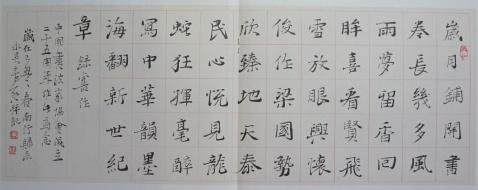 歲月鋪開書
卷長幾多風
雨夢留香回
眸喜看賢飛
雪放眼興懷
俊作梁國勢
欣臻地天泰
民心悅見龍
蛇狂揮毫醉
寫中華韻墨
海翻新世紀
章 錄作
中國書法家協會成立
二十五周年作念
歲在春南行歸來